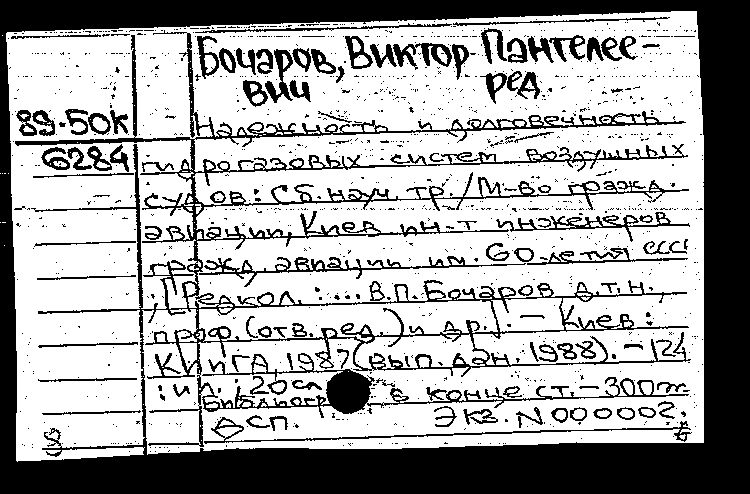 Бочаров, Виктор Пантелее-
вич ред.
89-50К
6284
Надежность и долговечность
гидрогазовых систем воздушных
судов: Сб. науч. тр. / М-во гражд.
авиации, Киев ин-т инженеров
гражд. авиации им. 60-летия СССР
; [Редкол.: ... В.П. Бочаров д.т.н.,
проф. (отв. ред.) и др.]. - Киев:
КИИГА, 1987 (вып. дан. 1988). - 124
: ил.; 20 см
Библиогр в конце ст. - 300
ДСП. Экз. N 000002.